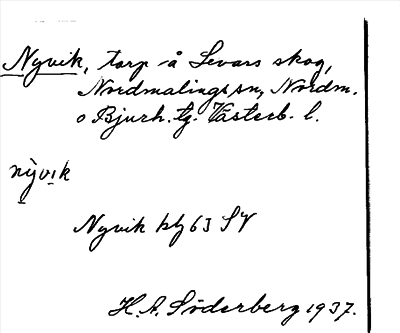 Nyvik, torp å Levars skog,
Nordmalings sn, Nordm.
o Bjurh. tg. Västerb. l.
nỳvık
Nyvik kbg 63 SV
H. A. Söderberg 1937.